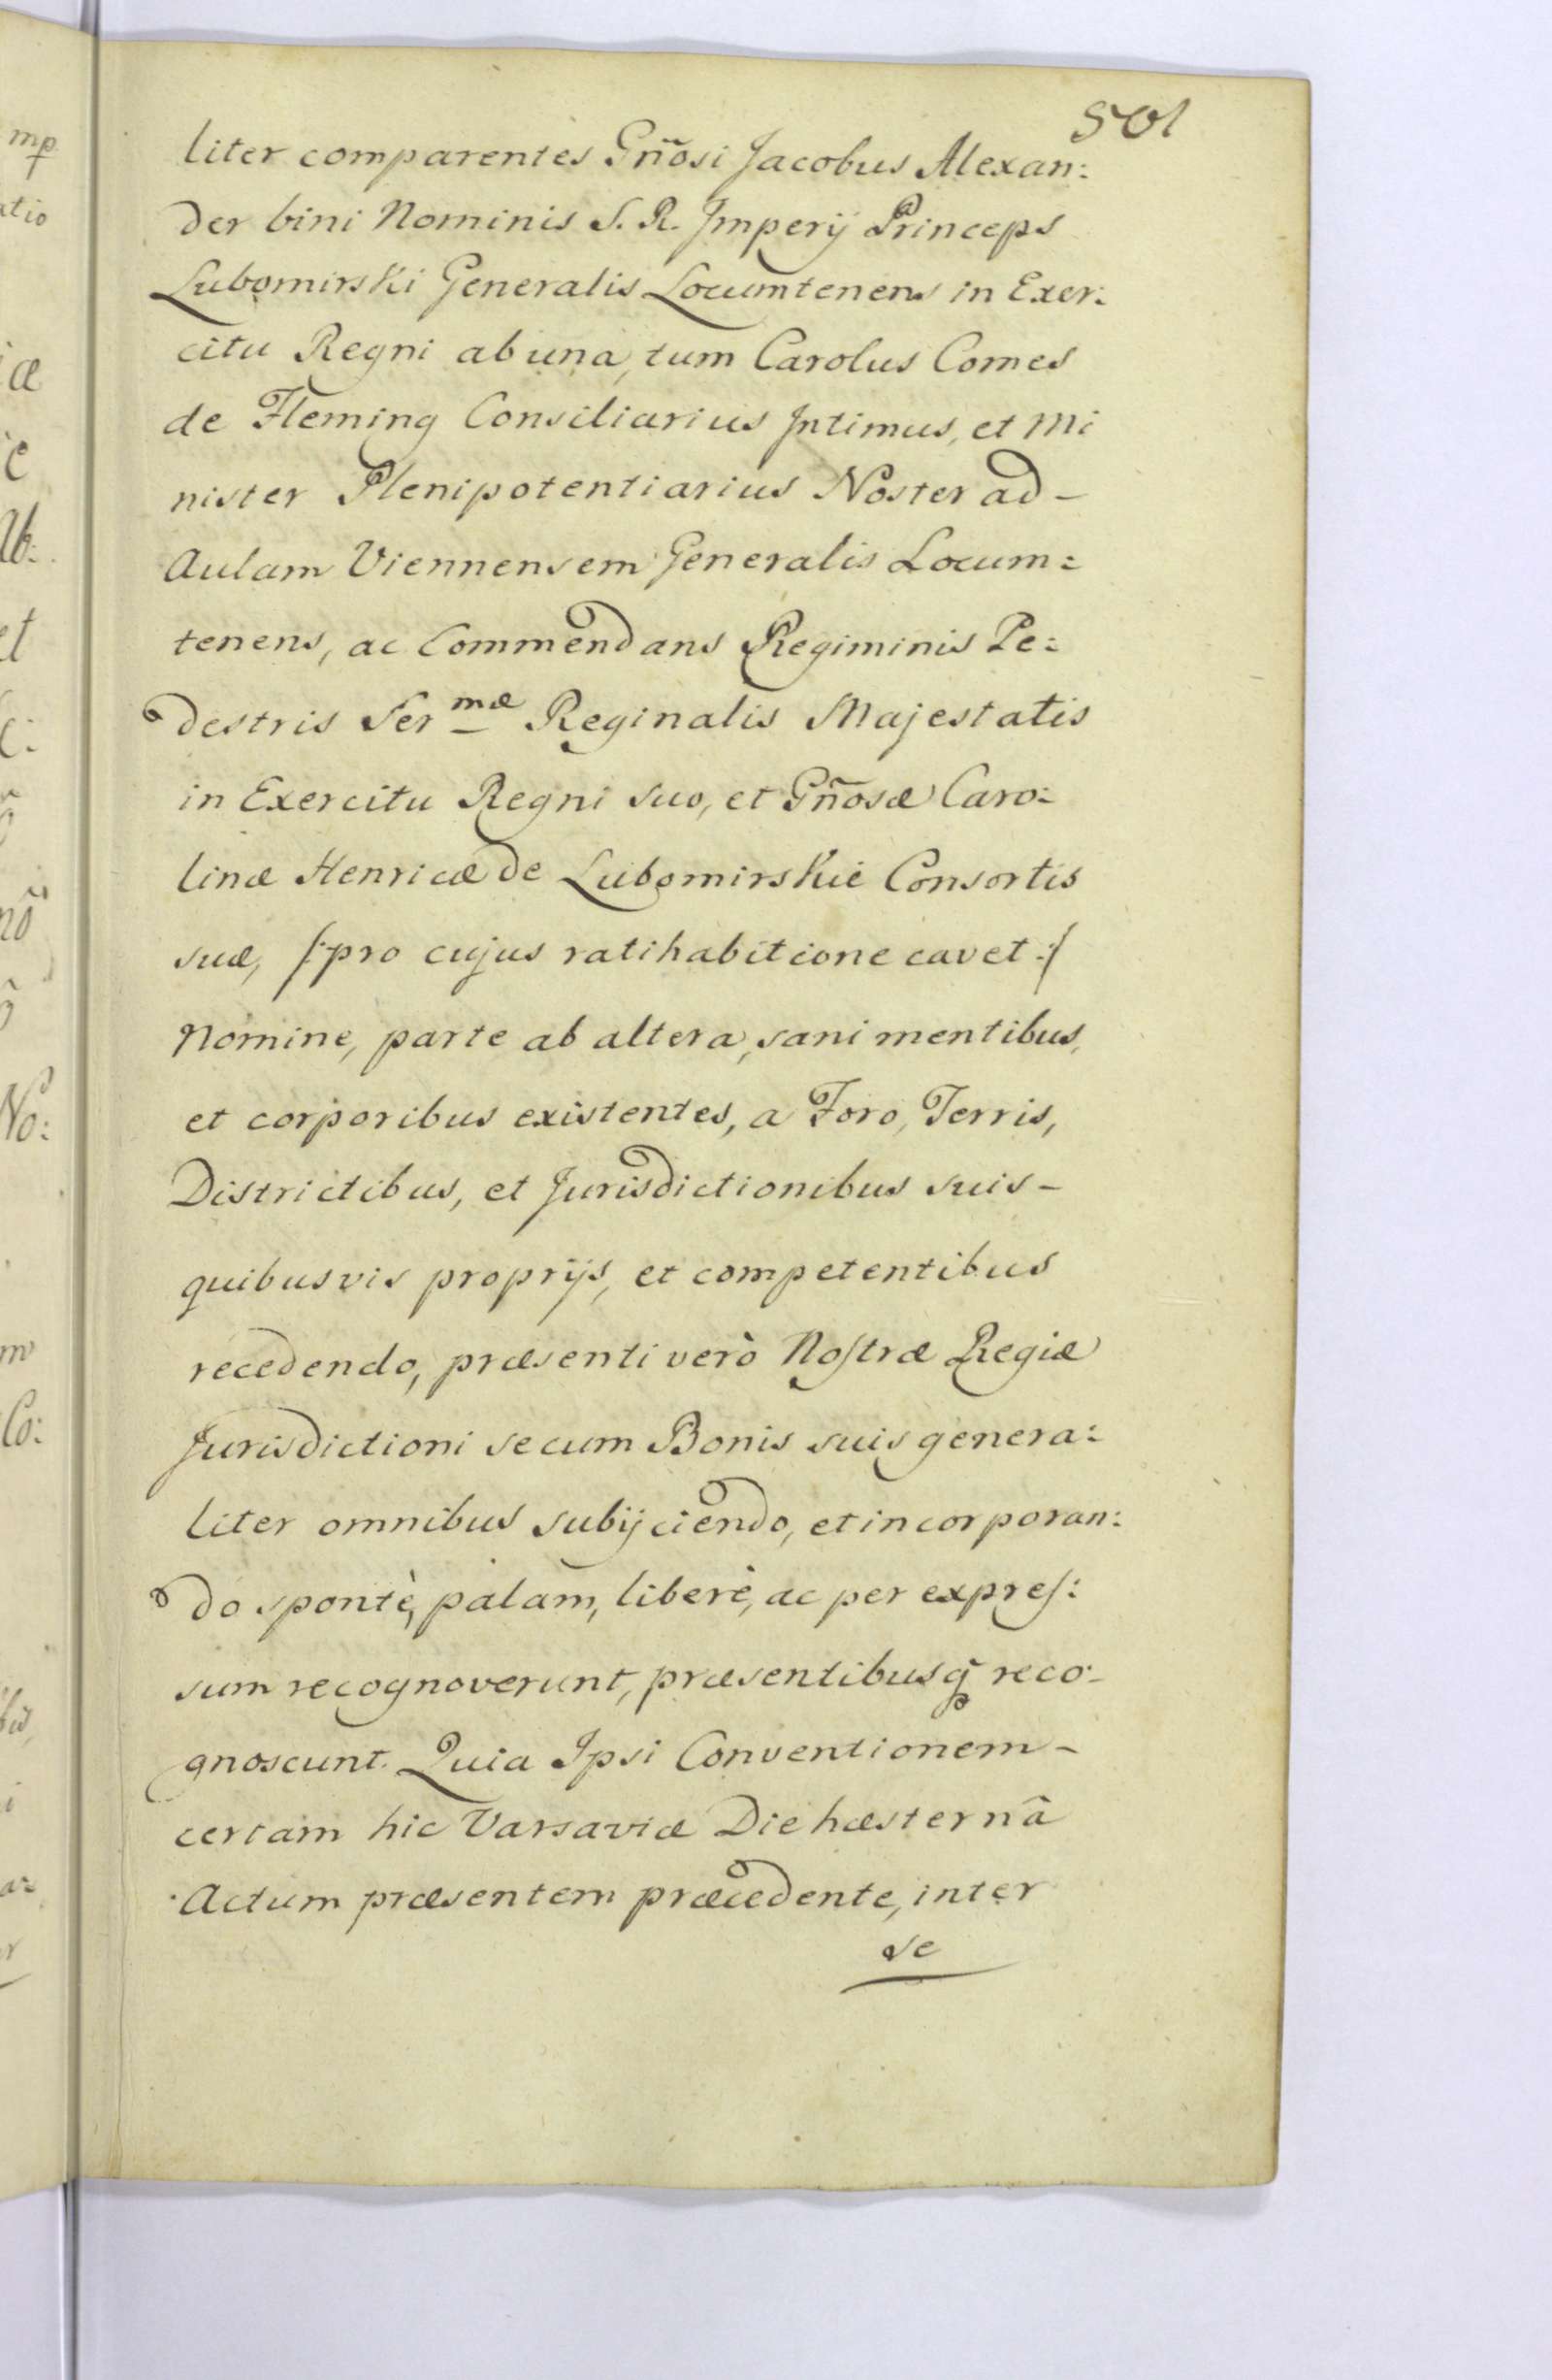 501
liter comparentes Gñosi Jacobus Alexan:
der bini Nominis S. R. Imperÿ Princeps
Lubomirski Generalis Locumtenens in Exer:
citu Regni ab una, tum Carolus Comes
de Fleming Consiliarius Intimus, et Mi
nister Plenipotentiarius Noster ad -
Aulam Viennensem Generalis Locum=
tenens, ac Commendans Regiminis Pe:
destris Ser^mæ Reginalis Majestatis
in Exercitu Regni suo, et Gñosæ Caro:
linæ Henricæ de Lubomirskie Consortis
suæ, /:pro cujus ratihabitione cavet:/
Nomine, parte ab altera, sani mentibus,
et corporibus existentes, a Foro, Terris,
Districtibus, et Jurisdictionibus suis -
quibusvis proprÿs, et competentibus
recedendo, præsenti verò Noſtræ Regiæ
Jurisdictioni se cum Bonis suis genera:
liter omnibus subÿciendo, et incorporan:
do spontè, palam, liberè, ac per expreſ:
sum recognoverunt, præsentibusq̃ reco:
gnoscunt. Quia Ipsi Conventionem -
certam hic Varsaviæ Die hæsternâ
Actum præsentem præcedente, inter
se
mp
atio
iæ
ic
Ab:
et
c:
nõ
No:
m
Co:
i
ar
r